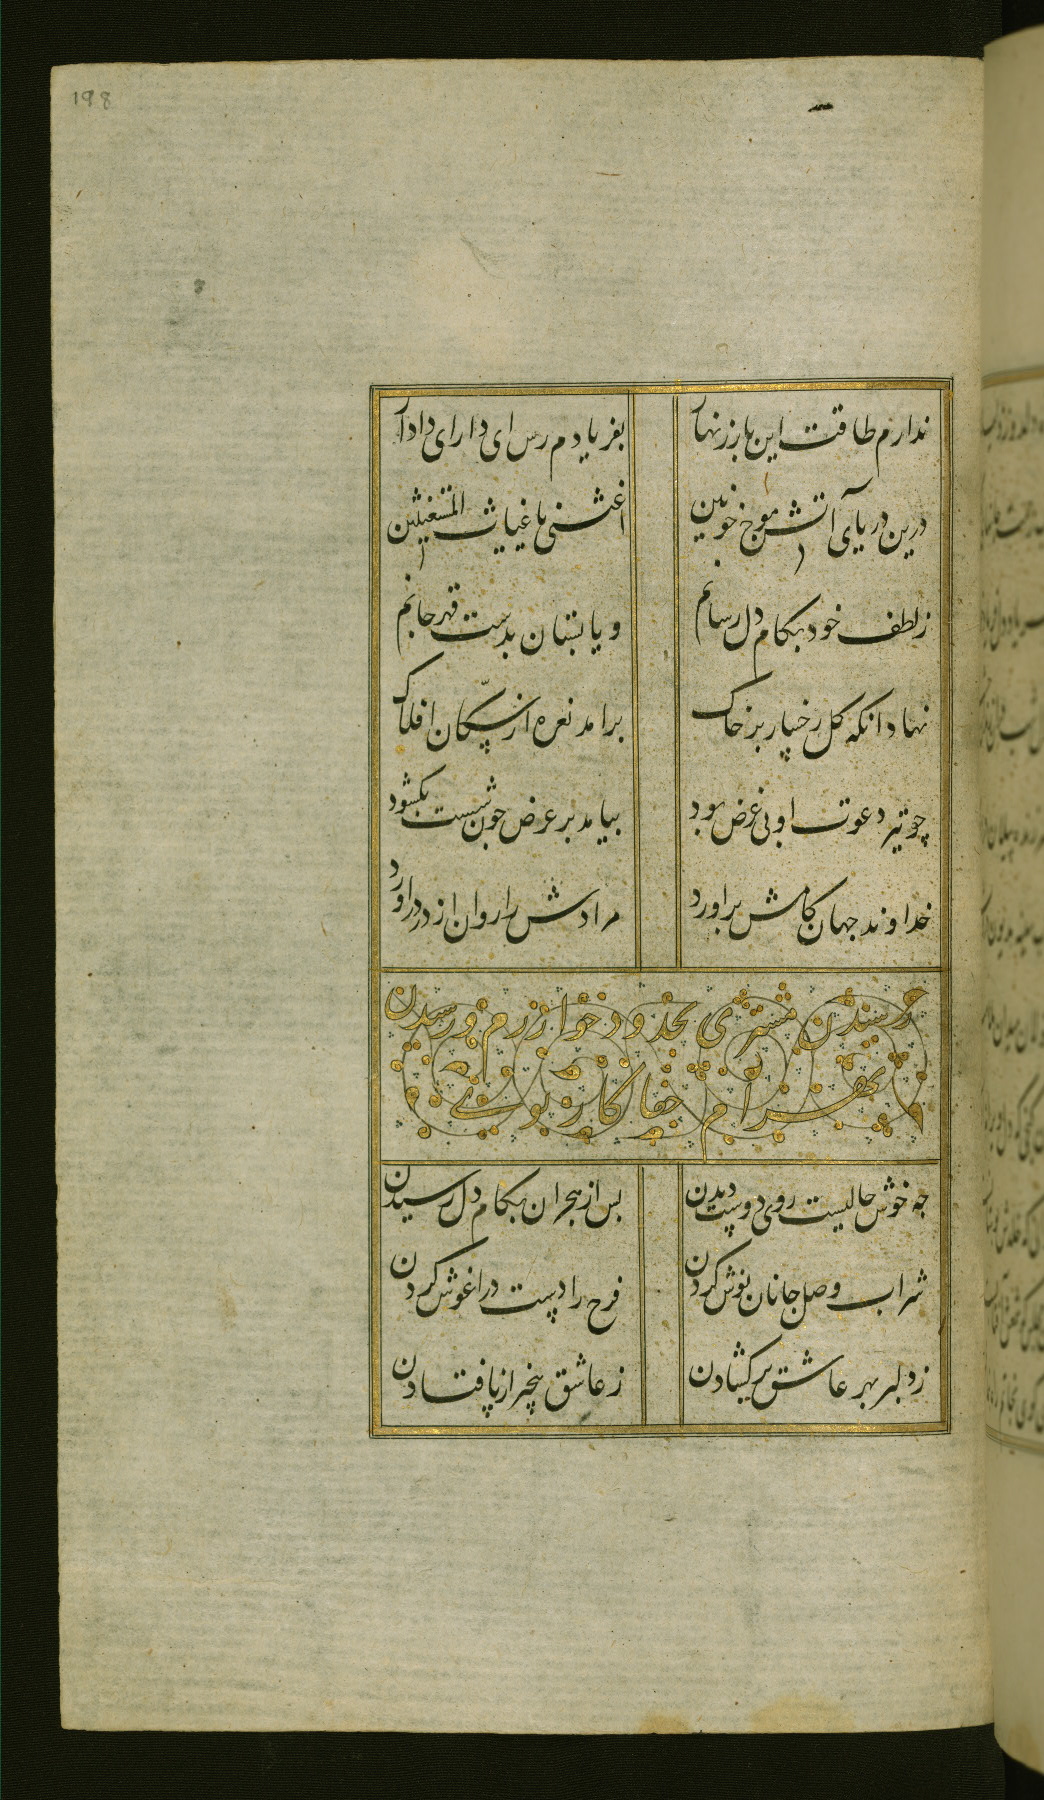 198
ندارم طاقت این بار زنهار بفریادم رس ای دارای دادار
درین دریای آتش موج خونین اغثنی یا غیاث المستغیثین
زلطف خود بکام دل رسانم و یا بستان بدست قهر جانم
نهاد انکه کل رخسار بر خاک برامد نعره از سکان افلاک
چو تیر دعوت او بی غرض بود بیامد بر غرض چون شست بکشود
خداوند جهان کامش براورد مرادش را روان از در دراورد
رسیدن مشتری بحدود خوارزم و رسیدن
بهرام
جه خوش حالیست روی دوست دیدن بس از هجران بکام دل رسیدن
شراب وصل جانان نوش کردن فرح را دست در اغوش کردن
زدلبر بهر عاشق بر کشادن ز عاشق بیخبر از پا فتادن